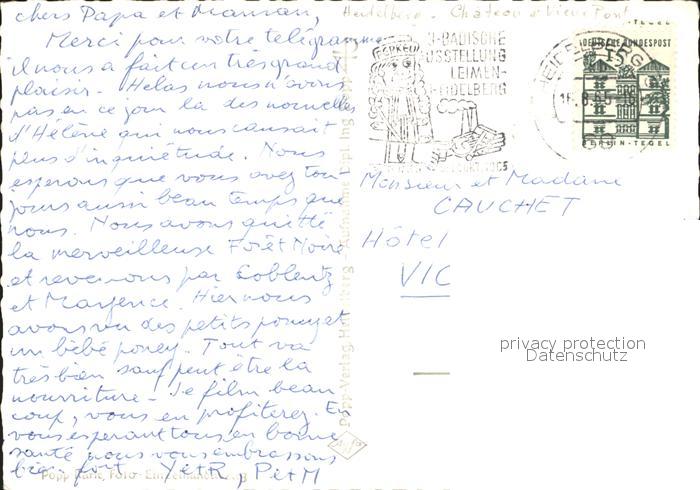 chers Papa et Maman,
Heidelberg - Château et Vieux Pont
Merci pour votre télégramme
il nous a fait un très grand
plaisir. Helas nous n'avons
pas en ce jour là des nouvelles
d'Hélène qui nous causait
plus d'inquiétude. Nous
esperons que vous avez tou-
jours aussi beau temps que
nous. Nous avons quitté
la merveilleuse Forêt Noire
et revenons par Coblentz
et Mayence. Hier nous
avons vu des petits poneys et
un bébé poney. Tout va
très bien sauf peut être la
nourriture - Je film beau
coup, vous en profiterez. En
vous esperant tous en bonne
santé nous vous embrassons
bien fort Y et R, P et M
-BADISCHE
USSTELLUNG
LEIMEN-
HEIDELBERG
1965
DEUTSCHE BUNDESPOST
15
BERLIN-TEGEL
TEGEL
Monsieur et Madame
CAUCHET
Hôtel
VIC
privacy protection
Datenschutz
Popp-Verlag, Heidelberg - Aufnahme Dipl. Ing.
Popp-Karte, Foto-